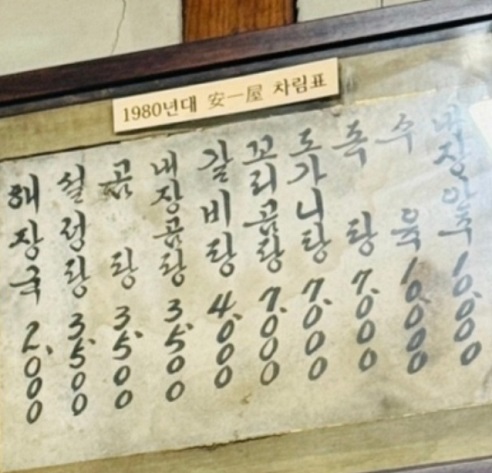 1980년대 安一屋 차림표
내장안주 10,000
수육 10,000
족탕 7,000
도가니탕 7,000
꼬리곰탕 7,000
갈비탕 4,000
내장곰탕 3,500
곰탕 3,500
설렁탕 3,500
해장국 2,000